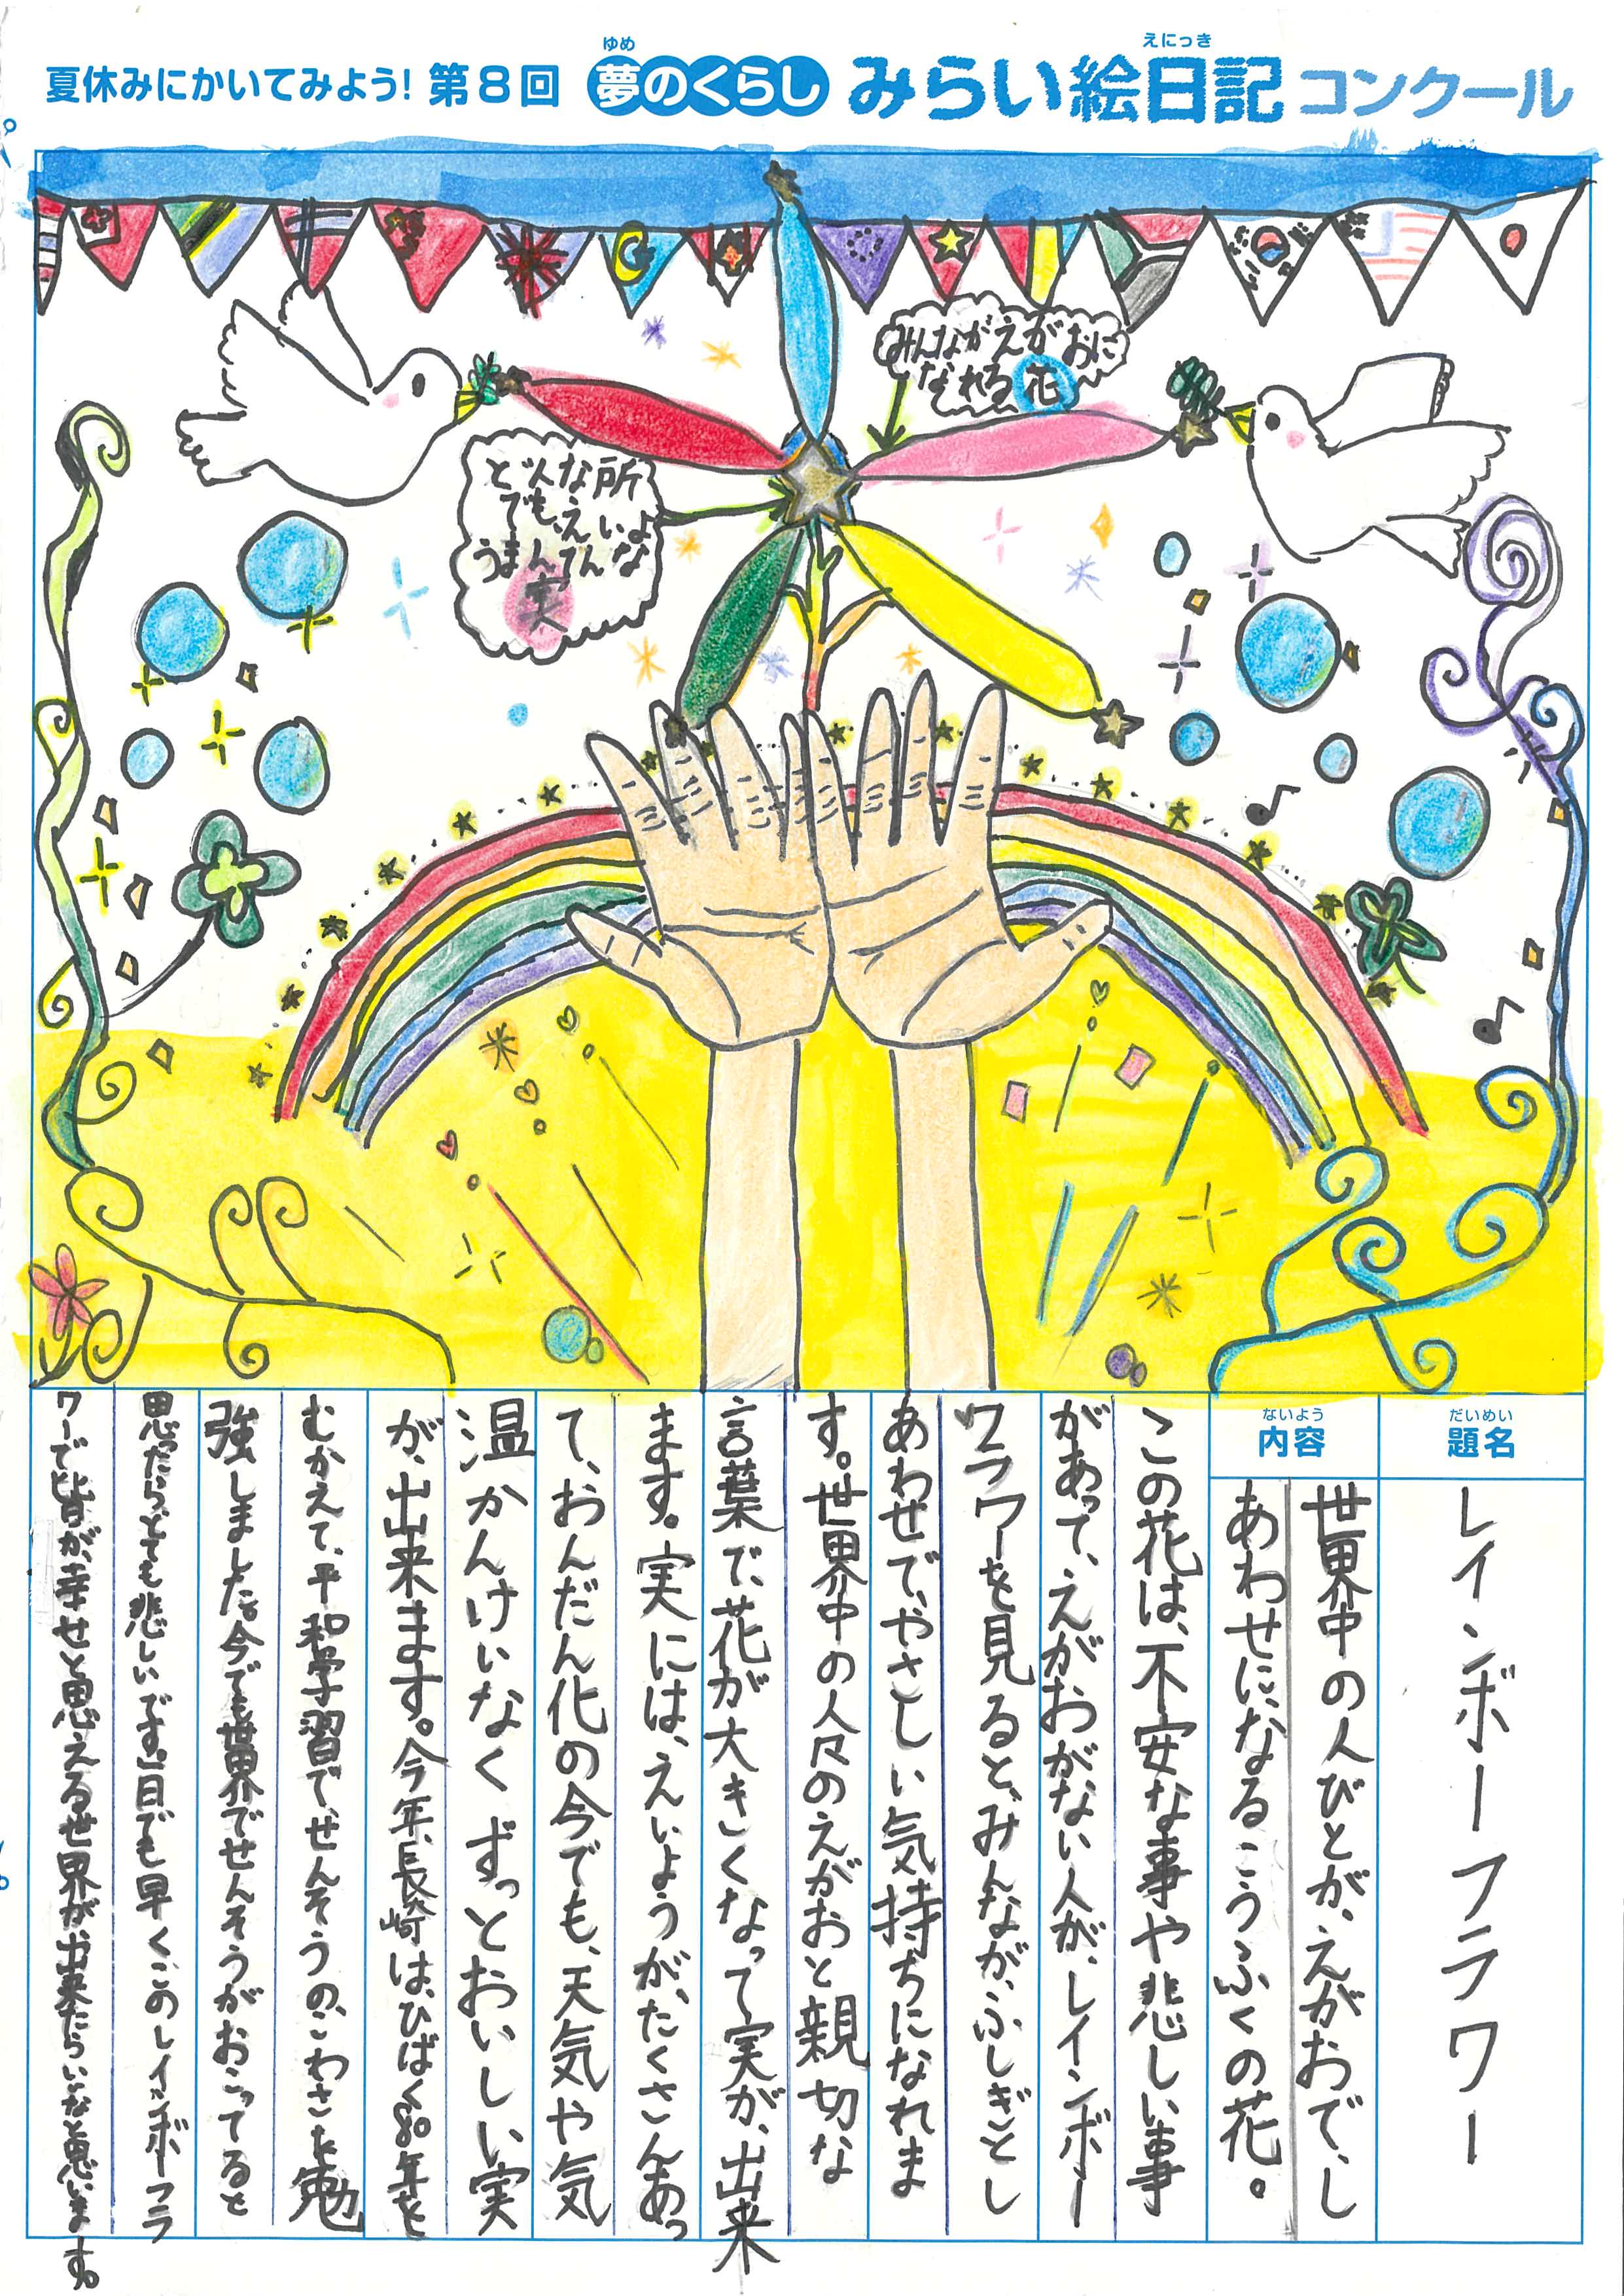 夏休みにかいてみよう! 第8回 夢のくらし みらい絵日記 コンクール
ゆめ
えにっき
みんながえがおに
なれる花
どんな所
でも、えいよ
うまんてんな
実
だいめい
題名
レインボーフラワー
ないよう
内容
世界中の人びとが、えがおで、し
あわせになるこうふくの花。
この花は、不安な事や悲しい事
があって、えがおがない人が、レインボー
フラワーを見ると、みんなが、ふしぎとし
あわせで、やさしい気持ちになれま
す。世界中の人々のえがおと親切な
言葉で、花が大きくなって実が、出来
ます。実には、えいようが、たくさんあっ
て、おんだん化の今でも、天気や気
温かんけいなくずっとおいしい実
が、出来ます。今年、長崎は、ひばく80年を
むかえて、平和学習で、せんそうの、こわさを勉
強しました。今でも世界でせんそうがおこってると
思ったらとても悲しいです。1日でも早く、このレインボーフラ
ワーで皆が、幸せと思える世界が、出来たらいいなと思います。